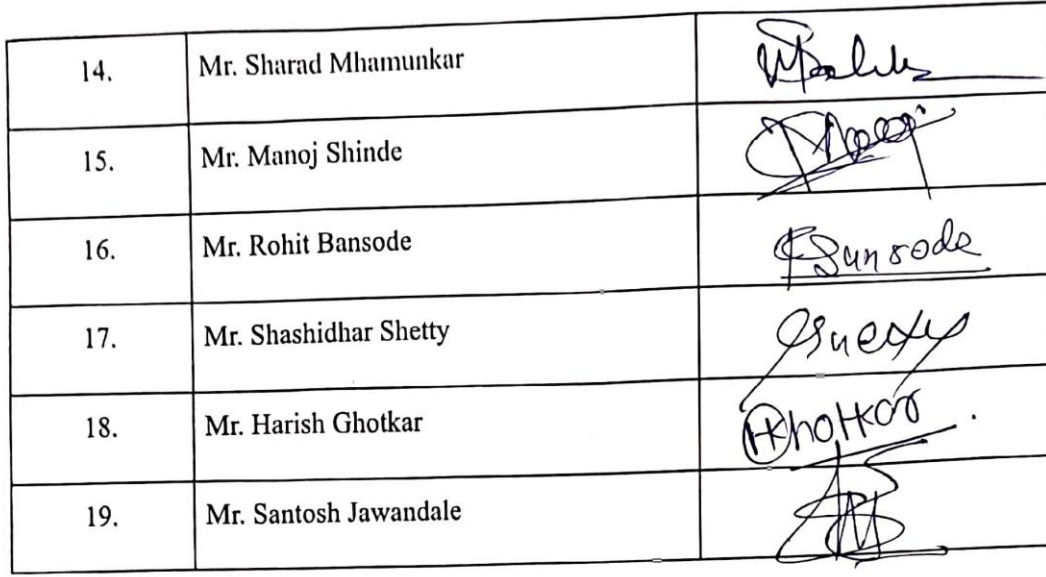 14. Mr. Sharad Mhamunkar
15. Mr. Manoj Shinde
16. Mr. Rohit Bansode Bansode
17. Mr. Shashidhar Shetty
18. Mr. Harish Ghotkar
19. Mr. Santosh Jawandale